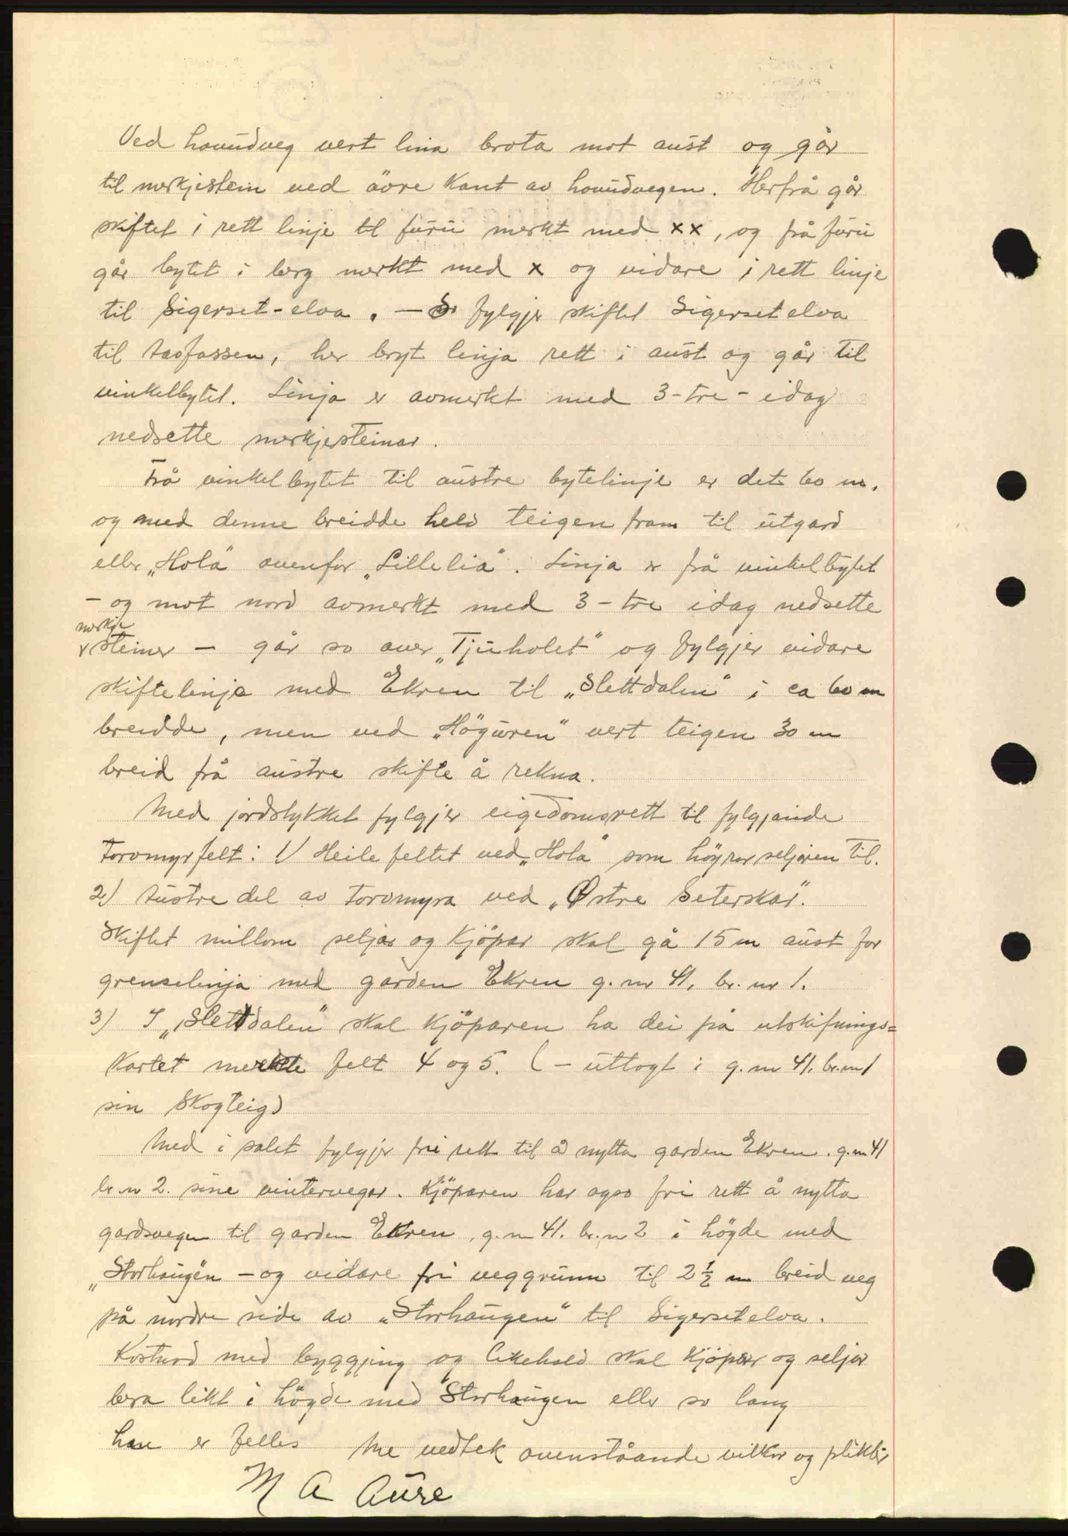 Ved hovudveg vert lina brota mot aust og går
til merkjestein ved övre kant av hovudvegen. Herfrå går
skiftet i rett linje til furu merkt med xx, og frå furu
går bytet i berg merkt med x og vidare i rett linje
til Sigerset-elva. – So fylgjer skiftet Sigersetelva
til, her bryt linja rett i aust og går til
vinkelbytet. Linja er avmerkt med 3-tre- idag
nedsette merkjesteinar.
Frå vinkelbytet til austre bytelinje er det 60 m.
og med denne breidde held teigen fram til utgard
eller „Hola“ ovenfor „Lillelia“. Linja er frå vinkelbytet
– og mot nord avmerkt med 3-tre idag nedsette
merkje
steiner – går so over „Tjuholet“ og fylgjer vidare
skiftelinje med Ekren til „Slettdalen“ i ca 60 m
breidde, men ved „Höguren“ vert teigen 30 m
breid frå austre skifte å rekna.
Med jordstykket fylgjer eigedomsrett til fylgjande
torvmyrfelt: 1/ Heile feltet ved „Hola“ som höyrer seljaren til.
2) Austre del av torvmyra ved „Østre Seterskar“.
Skiftet millom seljar og kjöpar skal gå 15 m aust for
grenselinja med garden Ekren g.nr 41, br.nr 1.
3) I „Slettdalen“ skal kjöparen ha dei på utskiftnings=
kartet merkte felt 4 og 5. (– uttogt i g.nr 41. br.nr 1
sin skogteig)
Med i salet fylgjer fri rett til å nytta garden Ekren. g.nr 41
br.nr 2. sine vintervegar. Kjöparen har ogso fri rett å nytta
gardsvegen til garden Ekren, g.nr 41. br.nr 2 i högde med
„Storhaugen – og vidare fri veggrunn til 2 1/2 m breid veg
på nordre side av „Storhaugen“ til Sigersetelva.
Kostnad med byggjing og likehald skal kjöpar og seljar
bera likt i högde med Storhaugen eller so lang
han er felles Me vedtek ovenståande vilkor og plikter
M A Aure